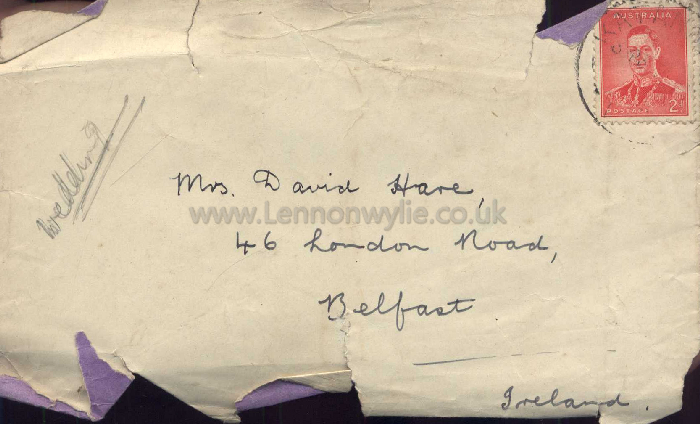 AUSTRALIA
POSTAGE 2D
wedding
Mrs. David Hare,
www.Lennonwylie.co.uk
46 London Road,
Belfast
Ireland.